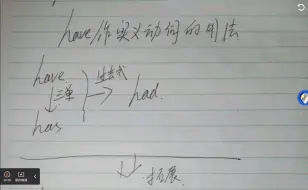 have作实义动词的用法
have 过去式
三单 had
has
拓展